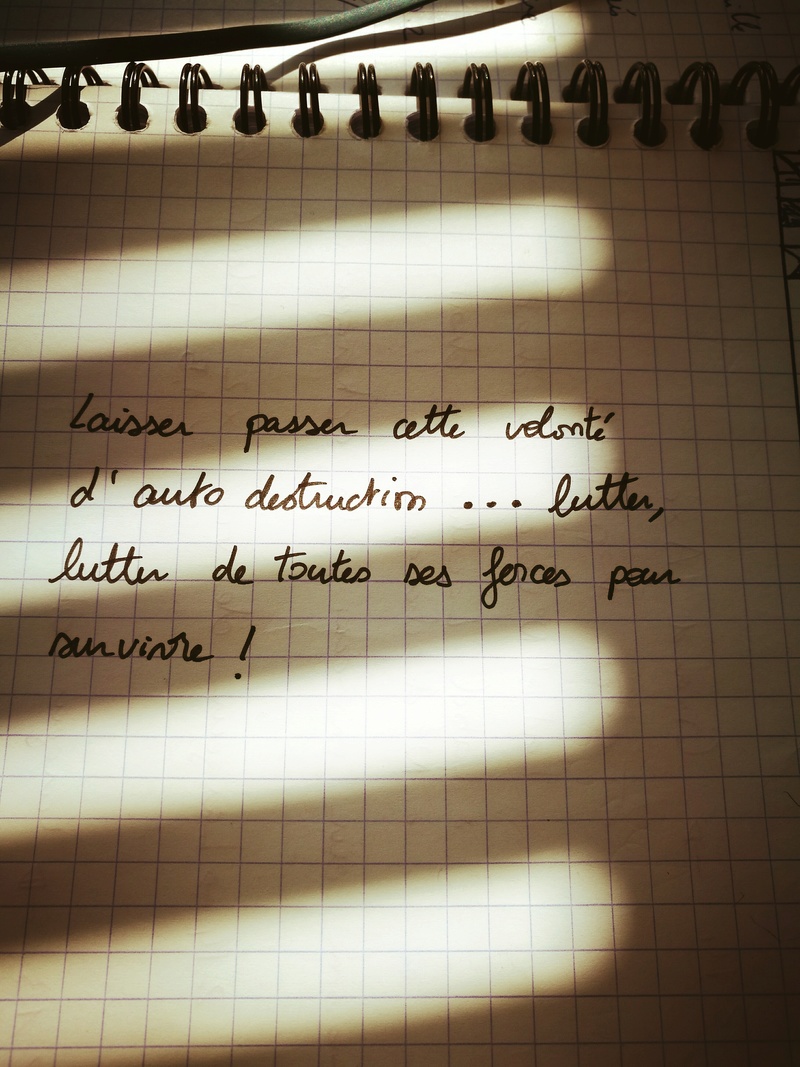 Laisser passer cette volonté
d'auto destruction ... lutter,
lutter de toutes ses forces pour
survivre !